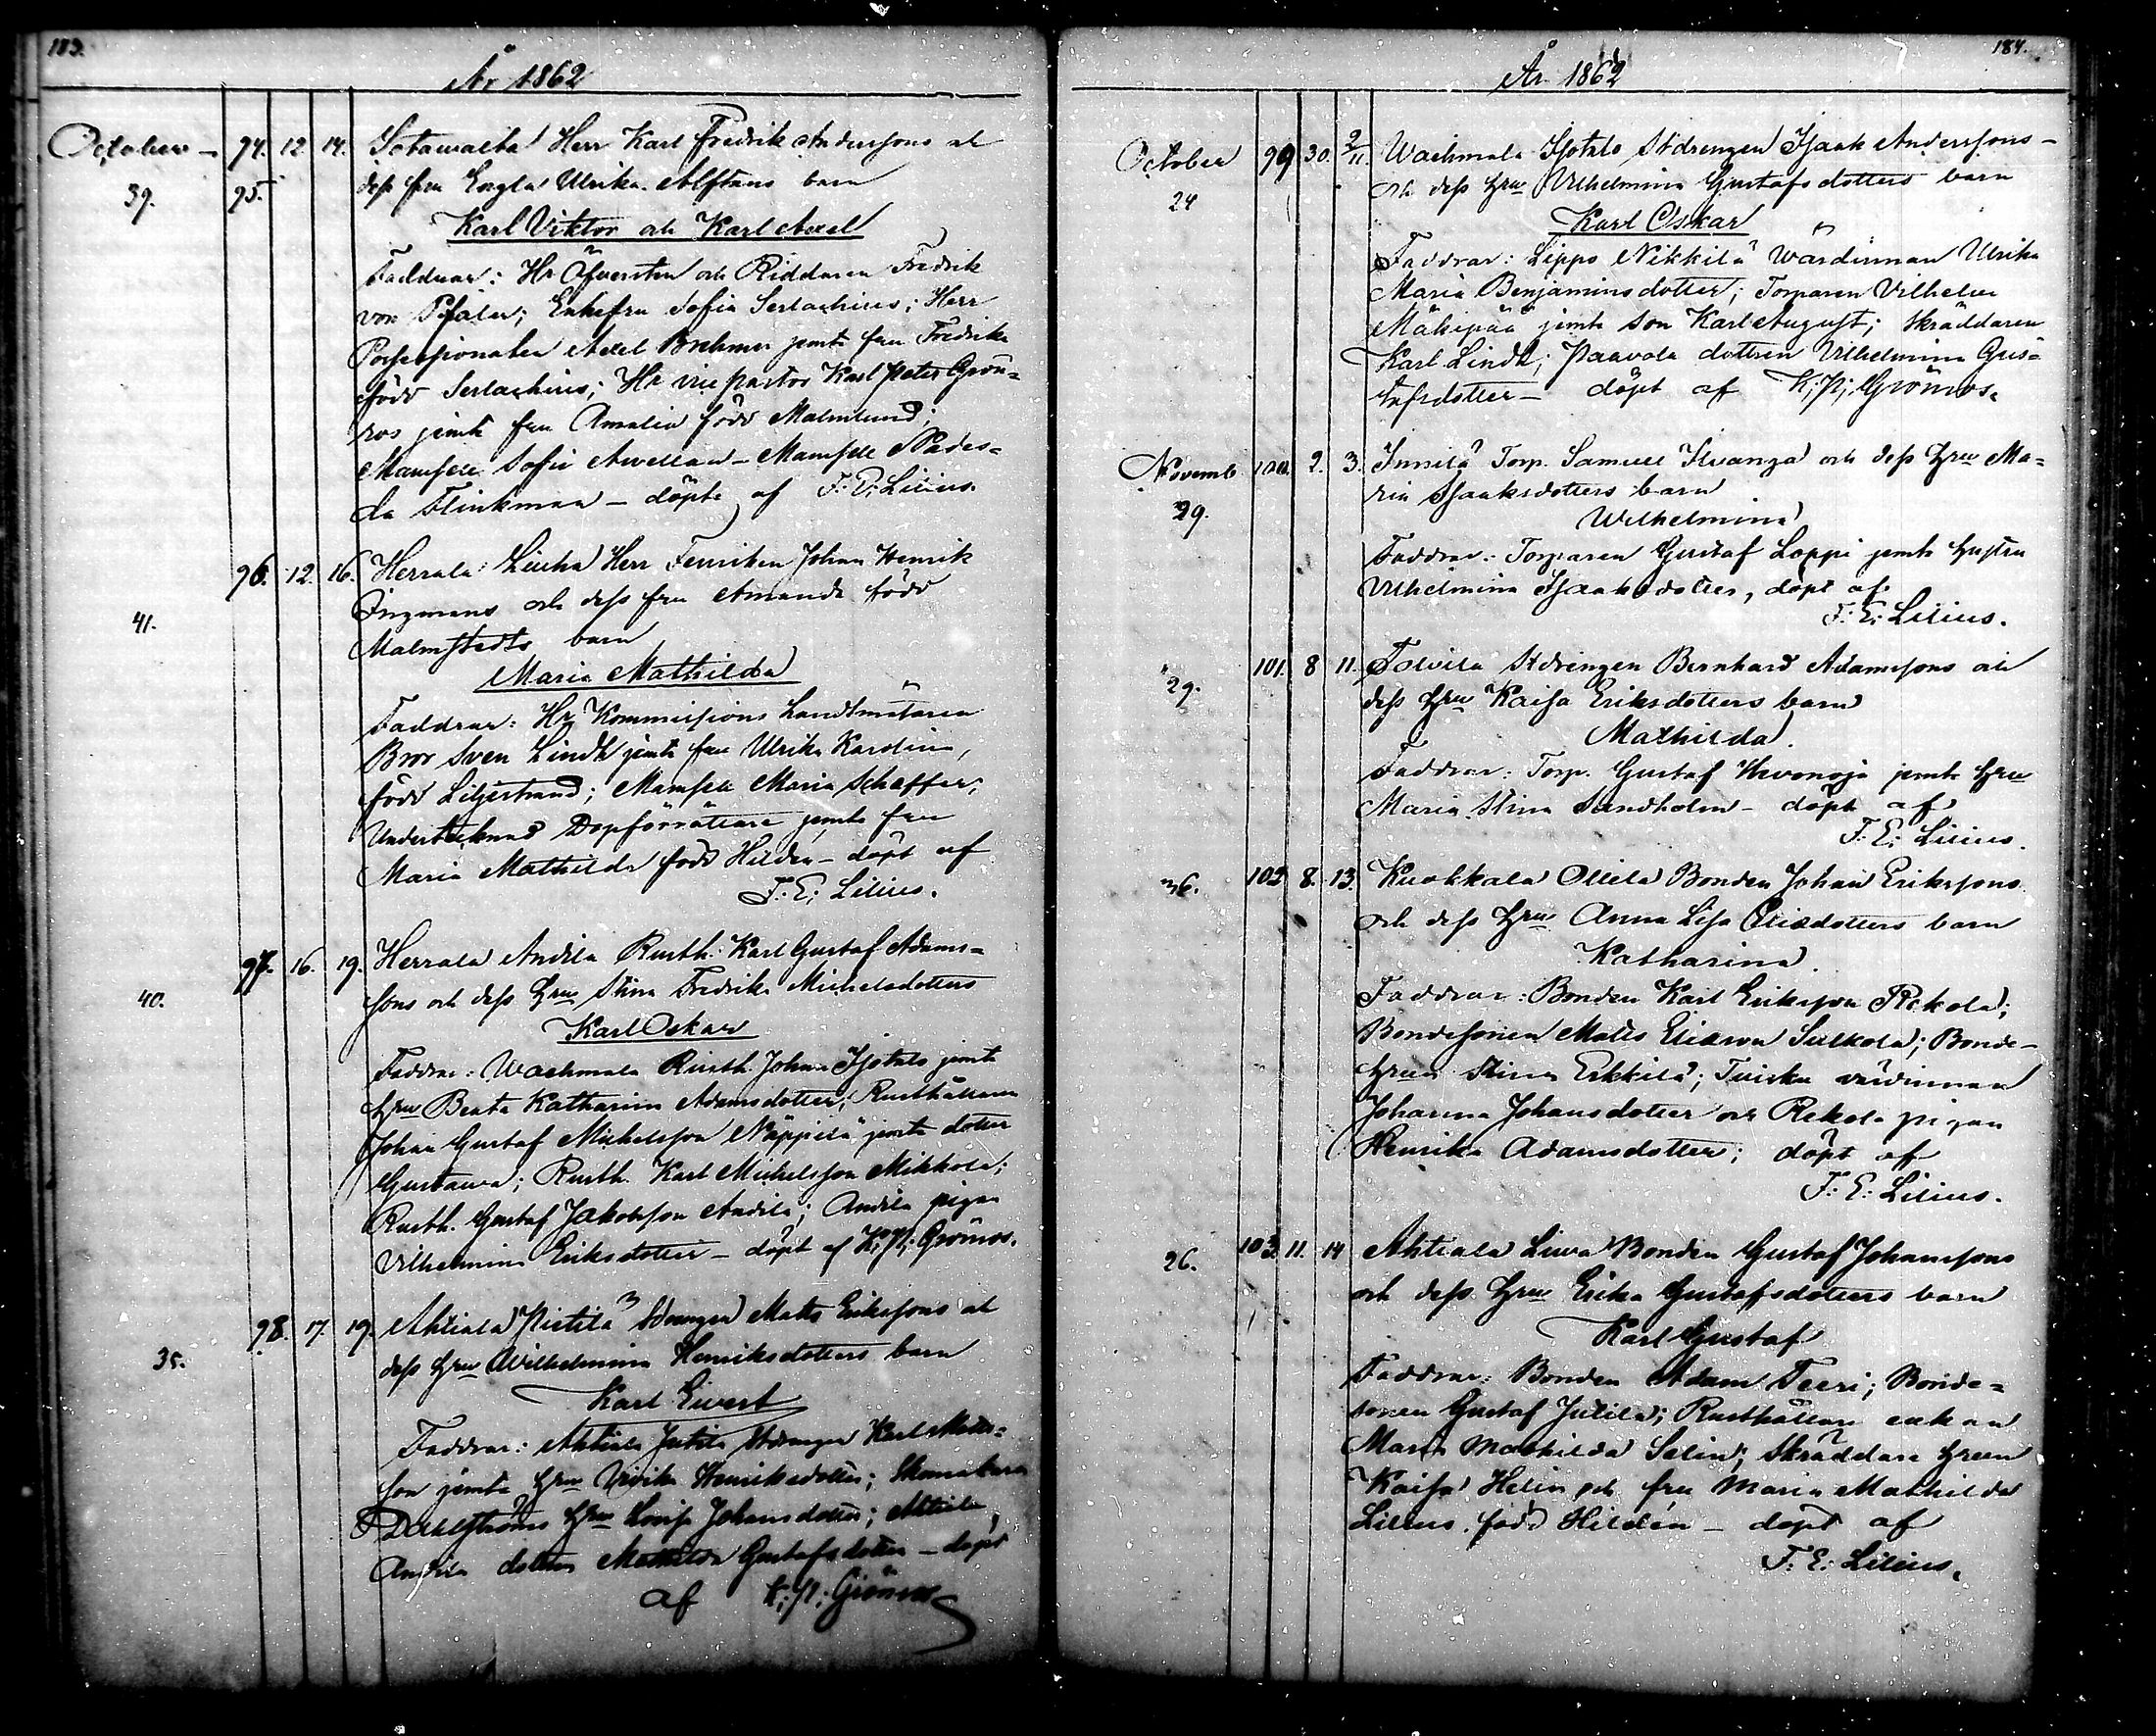 183.
År 1862
October – 94. 12 14. Sotawalta Herr Karl Fredrik Anderssons och
39. 95. dess fru Engla Ulrika Alftans barn
Karl Viktor och Karl Axel
Faddrar: Hr Öfversten och Riddaren Fredrik
von Pfaler; Enkefru Sofia Serlachius; Herr
Possessionaten Axel Brehmer jemte fru Fredrika
född Serlachius; Hr vice pastor Karl Peter Grön=
ros jemte fru Amalia född Malmlund;
Mamsell Sofie Avellan – Mamsell
Flinkman – döpte af F: E: Lilius.
96. 12. 16. Herrala Herr Fenriken Johan Henrik
Ingmans och dess fru Amanda född
41. Malmstedts barn
Maria Mathilda
Faddrar: Hr Kommissions Landtmätaren
Bror Sven Lindh jemte fru Ulrika Karolina,
född Liljestrand; Mamsell Maria Schaffer;
Undertecknad Dopförrättare jemte fru
Maria Mathilda född Hildén – döpt af
F: E: Lilius.
97. 16. 19. Herrala Andila Rusth. Karl Gustaf Adams=
40. sons och dess hru Stina Fredrika Michelsdotters
Karl Oskar
Faddrar: Wachmala Rusth. Johan Isotalo jemte
hru Beata Katharina Adamsdotter; Rusthållaren
Johan Gustaf Michelsson Näppilä jemte dotter
Gustawa; Rusth. Karl Michelsson Mikkola;
Rusth. Gustaf Jakobsson Andila; Andila pigan
Vilhelmina Eriksdotter – döpt af K: P: Grönros.
98. 17. 19. Ahtiala Pietilä Stdrängen Matts Erikssons och
35. dess hru Wilhelmina Henriksdotters barn
Karl Evert
Faddrar: Ahtiala Jutila Stdrängen Karl Matts=
son jemte hru Vivika Henriksdotter; Skomakaren
Dahlströms hru Lovisa Johansdotter; Ahtiala
Andila dottren Mathilda Gustafsdotter – döpt
af K: P: Grönros
184.
År 1862
October 99 30. 2/11. Wachmala Isotalo Stdrengen Isaak Anderssons –
24 och dess hru Vilhelmina Gustafsdotters barn
Karl Oskar
Faddrar: Lippo Nikkilä Wärdinnan Ulrika
Maria Benjaminsdotter; Torparen Vilhelm
Mäkipää jemte son Karl August; skräddaren
Karl Lindh; Paavola dottren Vilhelmina Gus=
tafsdotter – döpt af K: P: Grönros.
Novemb 100. 2. 3. Innilä Torp. Samuel och dess hru Ma=
29. ria Isaaksdotters barn
Wilhelmina
Faddrar: Torparen Gustaf Loppi jemte hustru
Vilhelmina Isaaksdotter, döpt af
F: E: Lilius.
29. 101. 8 11. Tolvila Stdrengen Bernhard Adamssons och
dess hru Kaisa Eriksdotters barn
Mathilda.
Faddrar: Torp. Gustaf Hevonoja jemte hru
Maria Stina Sandholm – döpt af
F: E: Lilius.
36. 102 8. 13. Kuokkala Ollila Bonden Johan Erikssons
och dess hru Anna Lisa Eliædotters barn
Katharina.
Faddrar: Bonden Karl Eriksson Rekola;
Bondesonen Matts Eliæson Sulkola; Bonde-
hrun Stina Erkkilä; Tuisku värdinnan
Johanna Johansdotter och Rekola pigan
Henrika Adamsdotter; döpt af
F: E: Lilius.
26. 103. 11. 14 Ahtiala Liuva Bonden Gustaf Johanssons
och dess hru Erika Gustafsdotters barn
Karl Gustaf
Faddrar: Bonden Adam Teeri; Bonde=
sonen Gustaf Jutila; Rusthållare enkan
Maria Mathilda Selin; Skräddare hrun
Kaisa Helin och fru Maria Mathilda
Lilius, född Hildén – döpt af
F: E: Lilius.